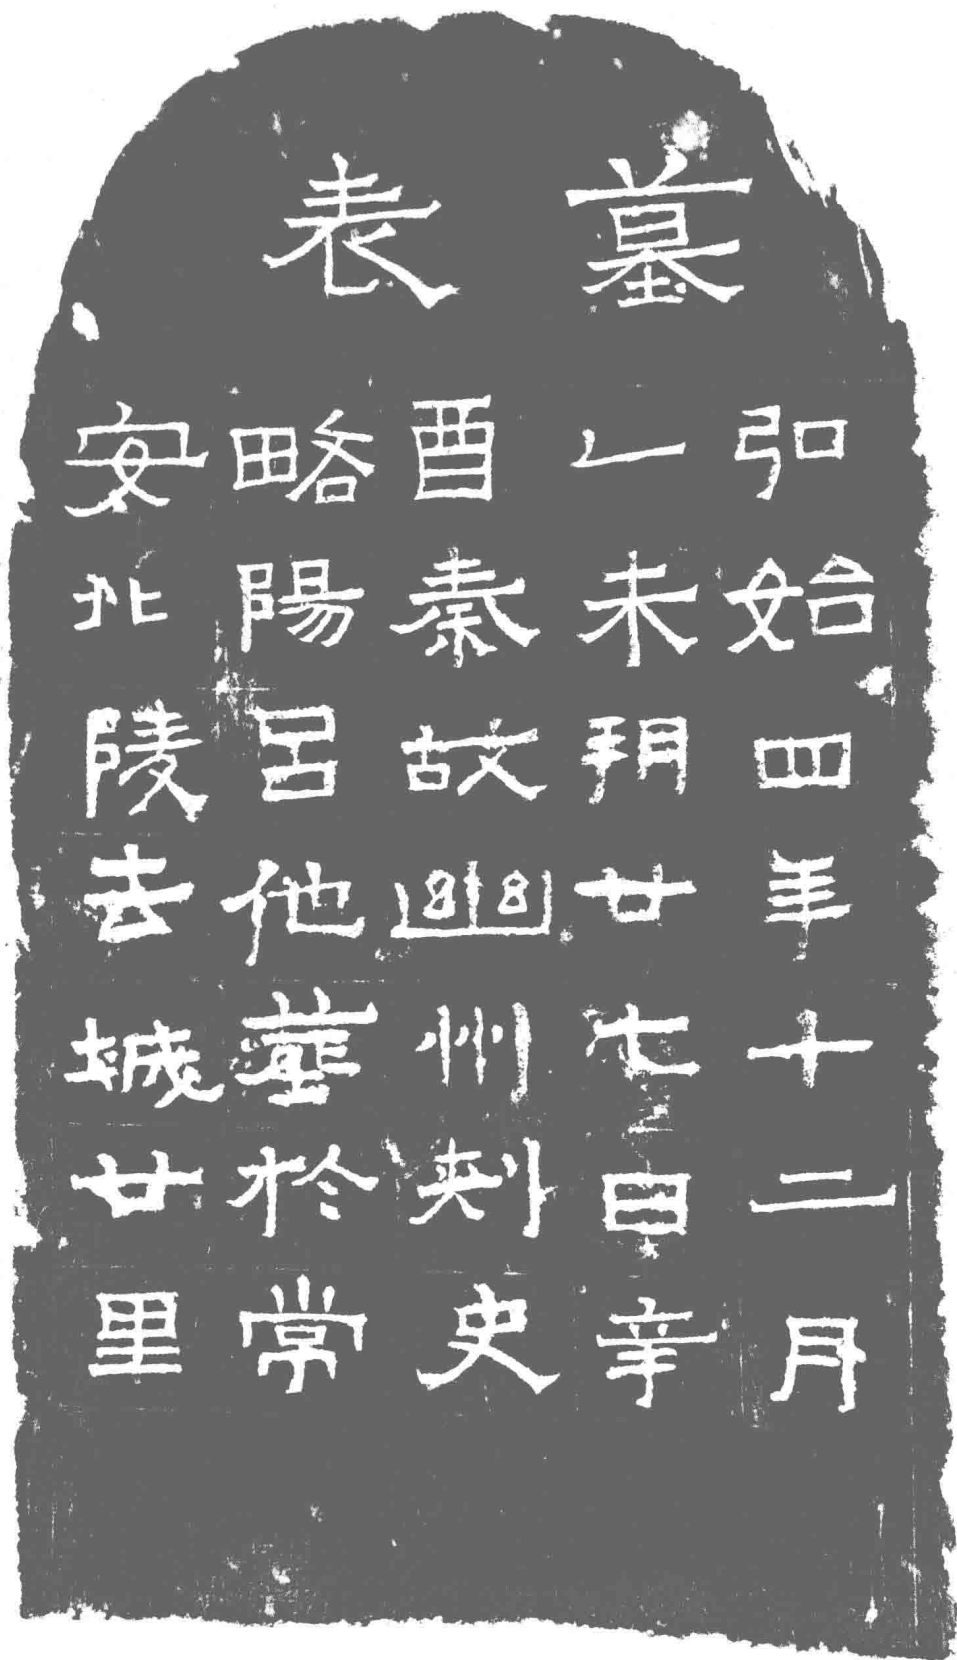 墓表
弘始四年十二月
乙未朔廿七日辛
酉秦故幽州刺史
略陽呂他葬於常
安北陵去城廿里